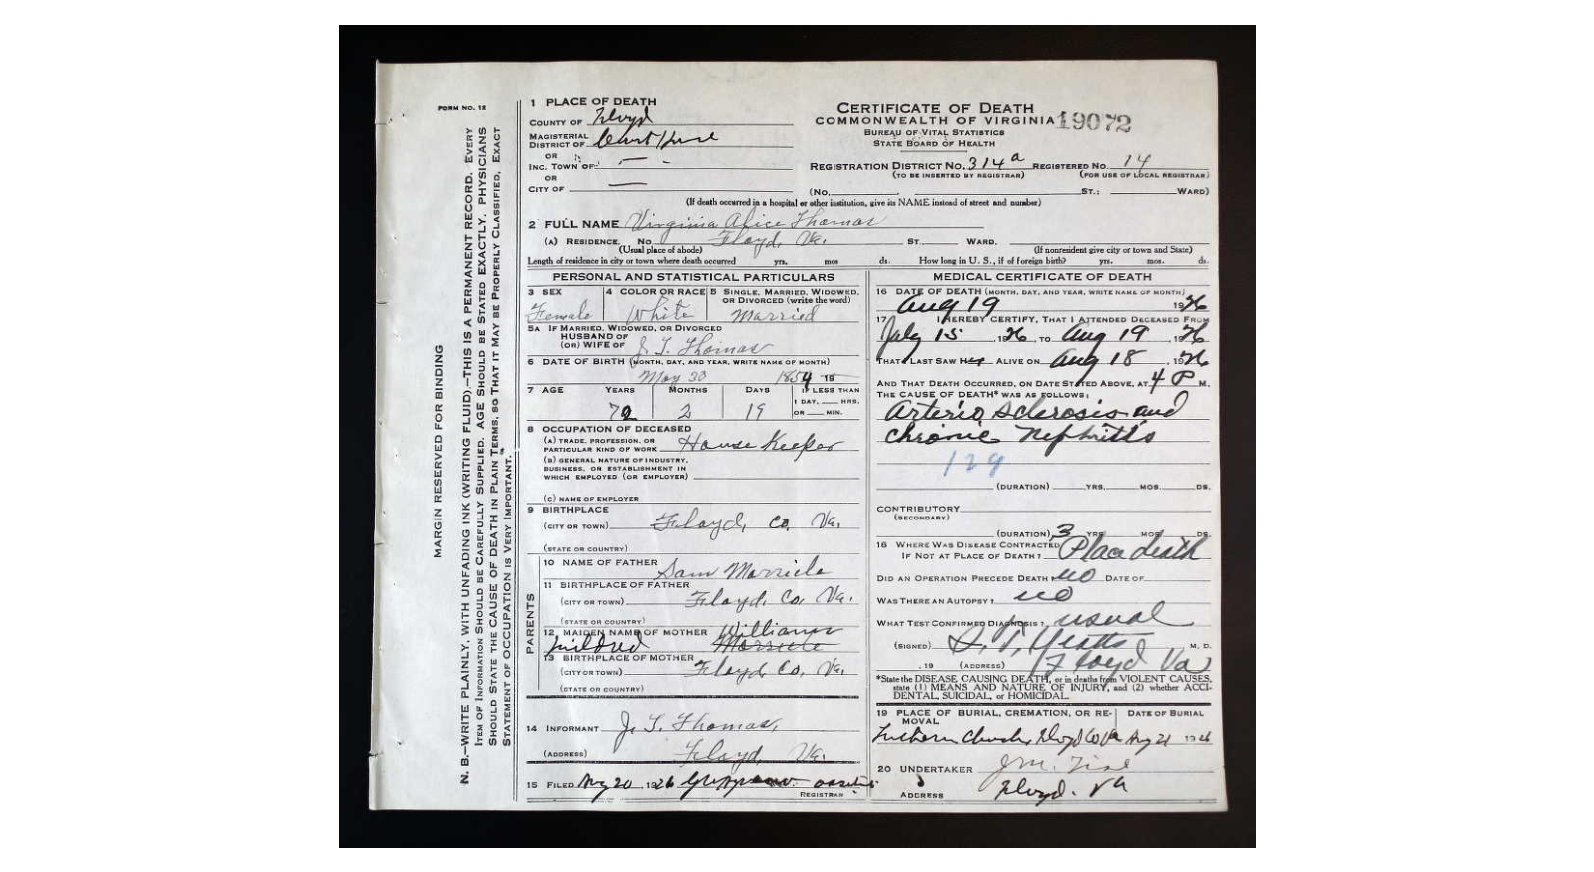 FORM NO. 12
MARGIN RESERVED FOR BINDING
N. B.—WRITE PLAINLY, WITH UNFADING INK (WRITING FLUID).—THIS IS A PERMANENT RECORD. EVERY
ITEM OF INFORMATION SHOULD BE CAREFULLY SUPPLIED. AGE SHOULD BE STATED EXACTLY. PHYSICIANS
SHOULD STATE THE CAUSE OF DEATH IN PLAIN TERMS, SO THAT IT MAY BE PROPERLY CLASSIFIED. EXACT
STATEMENT OF OCCUPATION IS VERY IMPORTANT.
1 PLACE OF DEATH
COUNTY OF Floyd
MAGISTERIAL
DISTRICT OF Court House
OR
INC. TOWN OF —
OR
CITY OF —
CERTIFICATE OF DEATH
COMMONWEALTH OF VIRGINIA 19072
BUREAU OF VITAL STATISTICS
STATE BOARD OF HEALTH
REGISTRATION DISTRICT NO. 314a REGISTERED NO. 14
(TO BE INSERTED BY REGISTRAR) (FOR USE OF LOCAL REGISTRAR)
(NO. ST.; WARD)
(If death occurred in a hospital or other institution, give its NAME instead of street and number)
2 FULL NAME Virginia Alice Thomas
(A) RESIDENCE, NO. Floyd, Va. ST. WARD.
(Usual place of abode) (If nonresident give city or town and State)
Length of residence in city or town where death occurred yrs. mos ds. How long in U. S., if of foreign birth? yrs. mos. ds.
PERSONAL AND STATISTICAL PARTICULARS
3 SEX 4 COLOR OR RACE 5 SINGLE, MARRIED, WIDOWED,
OR DIVORCED (write the word)
Female White Married
5A IF MARRIED, WIDOWED, OR DIVORCED
HUSBAND OF
(OR) WIFE OF J. T. Thomas
6 DATE OF BIRTH (MONTH, DAY, AND YEAR, WRITE NAME OF MONTH)
May 30 1854 19
7 AGE YEARS MONTHS DAYS IF LESS THAN
1 DAY, HRS.
OR MIN.
72 2 19
8 OCCUPATION OF DECEASED
(A) TRADE, PROFESSION, OR
PARTICULAR KIND OF WORK House Keeper
(B) GENERAL NATURE OF INDUSTRY,
BUSINESS, OR ESTABLISHMENT IN
WHICH EMPLOYED (OR EMPLOYER)
(C) NAME OF EMPLOYER
9 BIRTHPLACE
(CITY OR TOWN) Floyd, Co, Va.
(STATE OR COUNTRY)
PARENTS
10 NAME OF FATHER Sam
11 BIRTHPLACE OF FATHER
(CITY OR TOWN) Floyd, Co, Va.
(STATE OR COUNTRY)
12 MAIDEN NAME OF MOTHER Williams
Mildred
13 BIRTHPLACE OF MOTHER
(CITY OR TOWN) Floyd Co, Va.
(STATE OR COUNTRY)
14 INFORMANT J. T. Thomas,
(ADDRESS) Floyd, Va.
15 FILED Aug 20, 1926
REGISTRAR
MEDICAL CERTIFICATE OF DEATH
16 DATE OF DEATH (MONTH, DAY, AND YEAR, WRITE NAME OF MONTH)
Aug 19 1926
17 I HEREBY CERTIFY, THAT I ATTENDED DECEASED FROM
July 15, 1926, TO Aug 19, 1926
THAT I LAST SAW Her ALIVE ON Aug 18, 1926
AND THAT DEATH OCCURRED, ON DATE STATED ABOVE, AT 4 P M.
THE CAUSE OF DEATH* WAS AS FOLLOWS:
Arterio sclerosis and
chronic Nephritis
129
(DURATION) YRS. MOS. DS.
CONTRIBUTORY
(SECONDARY)
(DURATION) 3 YRS. MOS. DS.
18 WHERE WAS DISEASE CONTRACTED
IF NOT AT PLACE OF DEATH? Place death
DID AN OPERATION PRECEDE DEATH no DATE OF
WAS THERE AN AUTOPSY? no
WHAT TEST CONFIRMED DIAGNOSIS? usual
(SIGNED) M. D.
, 19 (ADDRESS) Floyd Va
*State the DISEASE CAUSING DEATH, or in deaths from VIOLENT CAUSES,
state (1) MEANS AND NATURE OF INJURY, and (2) whether ACCI-
DENTAL, SUICIDAL, or HOMICIDAL.
19 PLACE OF BURIAL, CREMATION, OR RE-
MOVAL DATE OF BURIAL
Church, Floyd Co Va Aug 21 1926
20 UNDERTAKER J M.
ADDRESS Floyd. Va